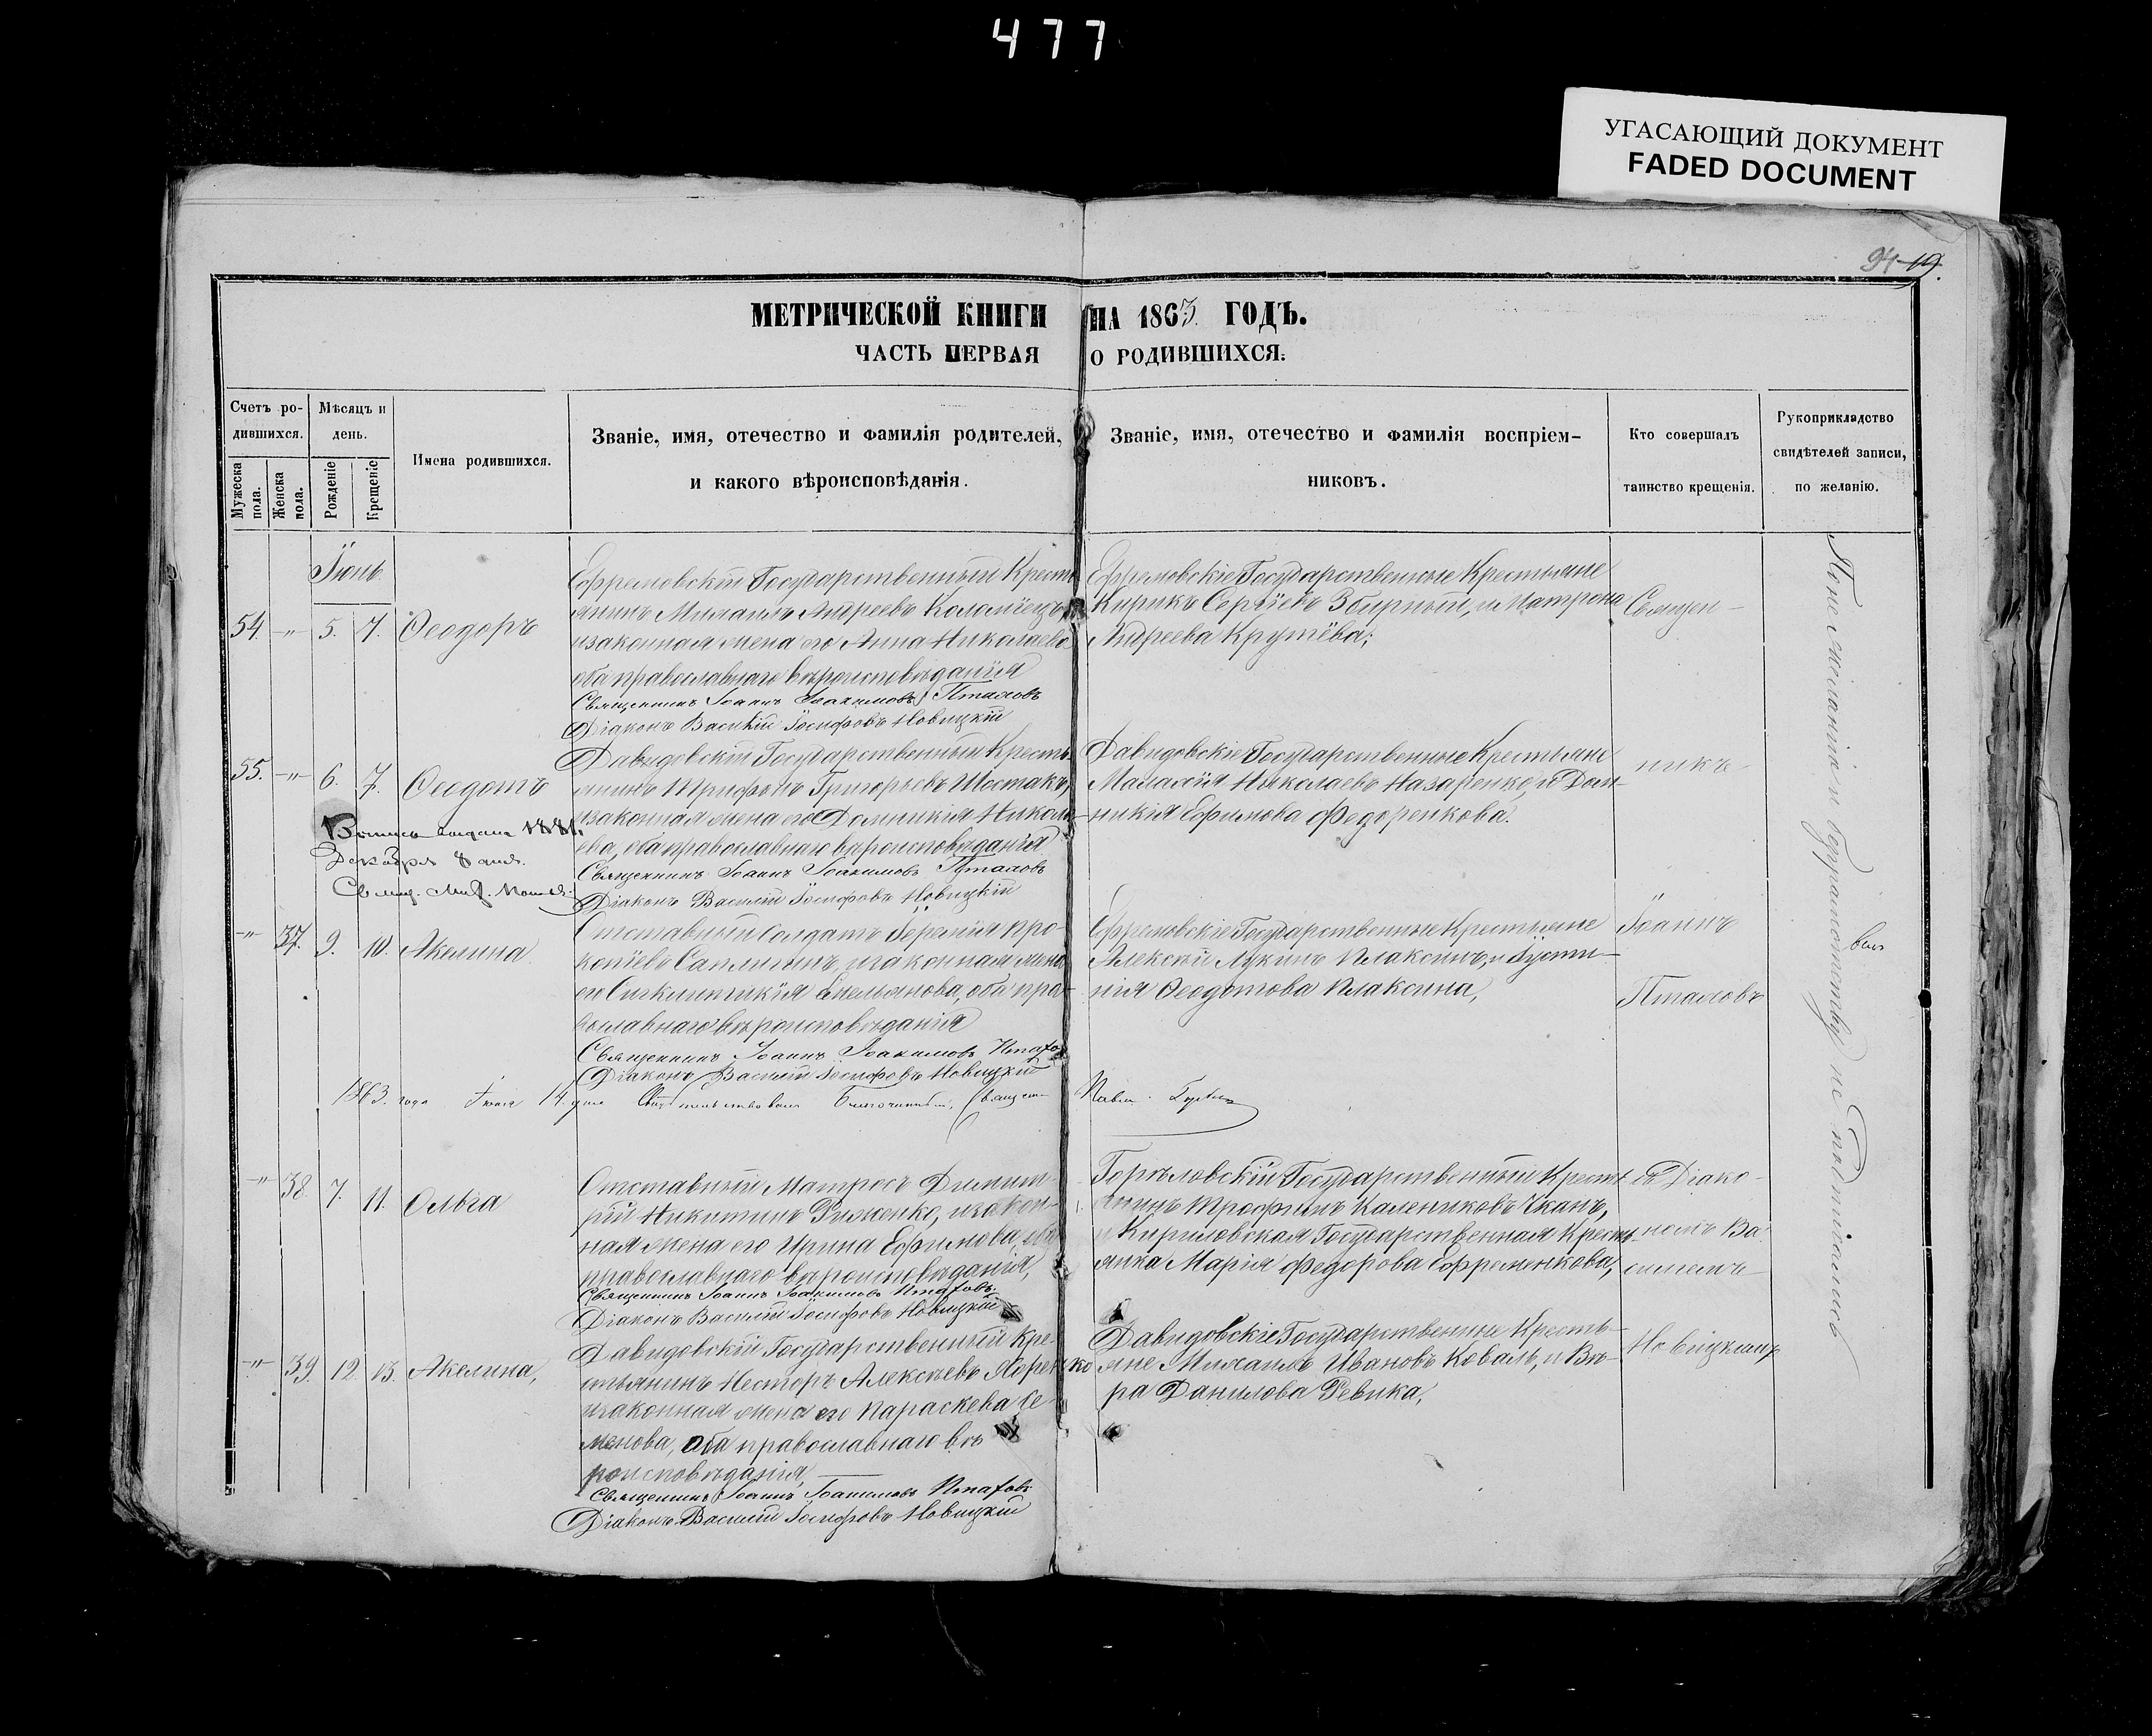 477
УГАСАЮЩИЙ ДОКУМЕНТ
FADED DOCUMENT
94 19.
МЕТРИЧЕСКОЙ КНИГИ НА 1863 ГОДЪ.
ЧАСТЬ ПЕРВАЯ О РОДИВШИХСЯ.
Счетъ ро-
дившихся.
Мужеска пола.
Женска пола.
Мѣсяцъ и
день.
Рожденіе
Крещеніе
Имена родившихся.
Званіе, имя, отечество и фамилія родителей,
и какого вѣроисповѣданія.
Званіе, имя, отечество и фамилія воспріем-
никовъ.
Кто совершалъ
таинство крещенія.
Рукоприкладство
свидѣтелей записи,
по желанію.
Іюнь
54 -"- 5. 7. Ѳеодоръ
Ефремовскій Государственный Кресть
янинъ Михаилъ Андреевъ Коломіецъ, и
изаконная жена его Анна Николаева
оба православнаго вѣроисповѣданія
Священникъ Іоаннъ Іоакимовъ Птаховъ
Діаконъ Василій Іосифовъ Новицкій
Ефремовскіе Государственные Крестьяне
Кирикъ Сергѣевъ Збирный, и Матрона
Андреева Крутёва;
Священ-
55. -"- 6. 7. Ѳеодотъ
Давидовскій Государственный Кресть-
янинъ Трифонъ Григорьевъ Шостакъ,
изаконная жена его Домникія Никола-
ева, оба православнаго вѣроисповѣданія
Священникъ Іоаннъ Іоакимовъ Птаховъ
Діаконъ Василій Іосифовъ Новицкій
Давидовскіе Государственные Крестьяне
Малахія Николаевъ Назаренко, и Дом-
никія Ефимова Федоренкова.
никъ
Декабря 8 дня.
-"- 37. 9. 10. Акелина
Отставный Солдатъ Іеремія Про-
копіевъ Саплинъ, изаконная жена
его Сигклитикія Емельянова, оба пра-
вославнаго вѣроисповѣданія
Священникъ Іоаннъ Іоакимовъ Птахов
Діаконъ Василій Іосифовъ Новицкій
Ефремовскіе Государственные Крестьяне
Алексѣй Лукинъ Плаксинъ, и Іусти-
нія Ѳеодотова Плаксина,
Іоаннъ
Птаховъ
1863. года Іюня 14 дня Свидѣтельствовалъ Благочинный, Священ Павел
-"- 38 7. 11. Ольга
Отставный Матросъ Димит-
рій Никитинъ Рыженко, изакон-
ная жена его Ирина Ефимова, оба
православнаго вѣроисповѣданія,
Священникъ Іоаннъ Іоакимовъ Птаховъ
Діаконъ Василій Іосифовъ Новицкій
Горѣловскій Государственный Кресть
янинъ Трофимъ Калениковъ Чканъ,
и Кириловская Государственная Кресть-
янка Марія Федорова Ефременкова,
съ Діако-
номъ Ва-
силіемъ
-"- 39. 12 13. Акелина,
Давидовскій Государственный Кре-
стьянинъ Несторъ Алексѣевъ Хоренко
изаконная жена его Параскева Се
менова, оба православнаго вѣ
роисповѣданія,
Священникъ Іоаннъ Іоакимовъ Птаховъ
Діаконъ Василій Іосифовъ Новицкій
Давидовскіе Государственные Кресть-
яне Михаилъ Ивановъ Коваль, и Вѣ-
ра Данилова Ревика,
Новицкимъ
По не желанію и безграмотству не подписались